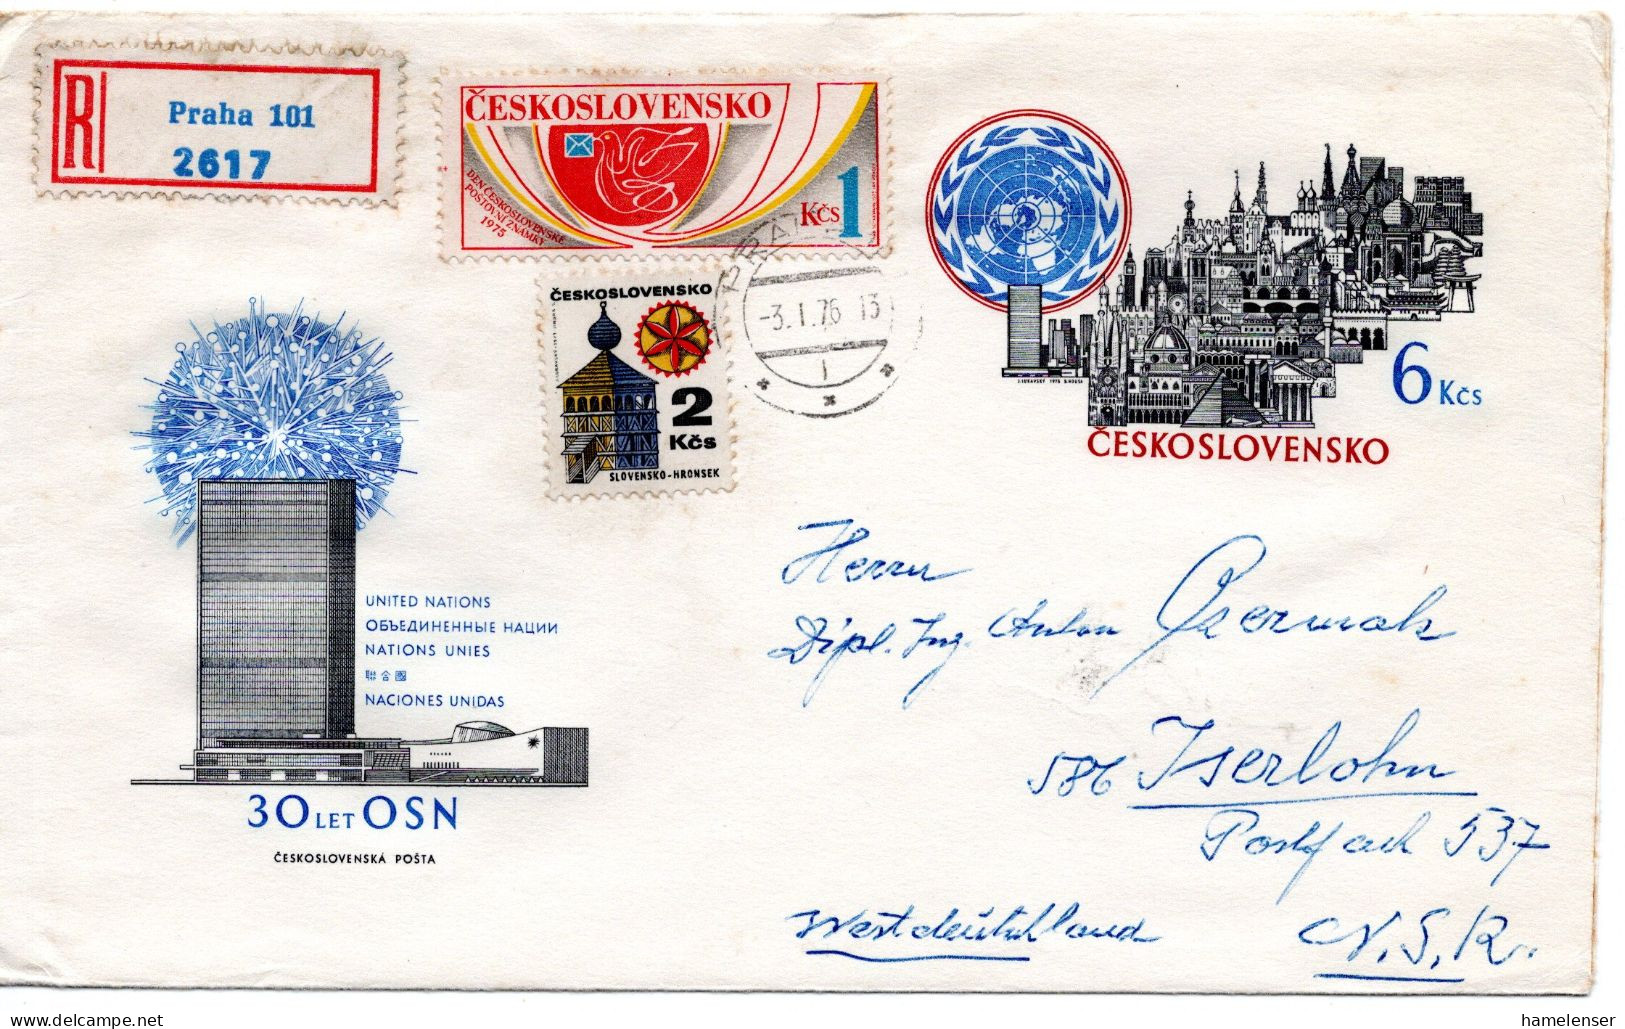 R
Praha 101
2617
ČESKOSLOVENSKO
DEN ČESKOSLOVENSKÉ
POŠTOVNÍ ZNÁMKY
1975
Kčs 1
ČESKOSLOVENSKO
2
Kčs
SLOVENSKO-HRONSEK
PRAHA
-3.I.76 13
6 Kčs
ČESKOSLOVENSKO
UNITED NATIONS
ОБЪЕДИНЕННЫЕ НАЦИИ
NATIONS UNIES
聯合國
NACIONES UNIDAS
30 LET OSN
ČESKOSLOVENSKÁ POŠTA
Herrn
Dipl. Ing. Anton Czermak
586 Iserlohn
Postfach 537
Westdeutschland N.S.R.
www.delcampe.net
hamelenser